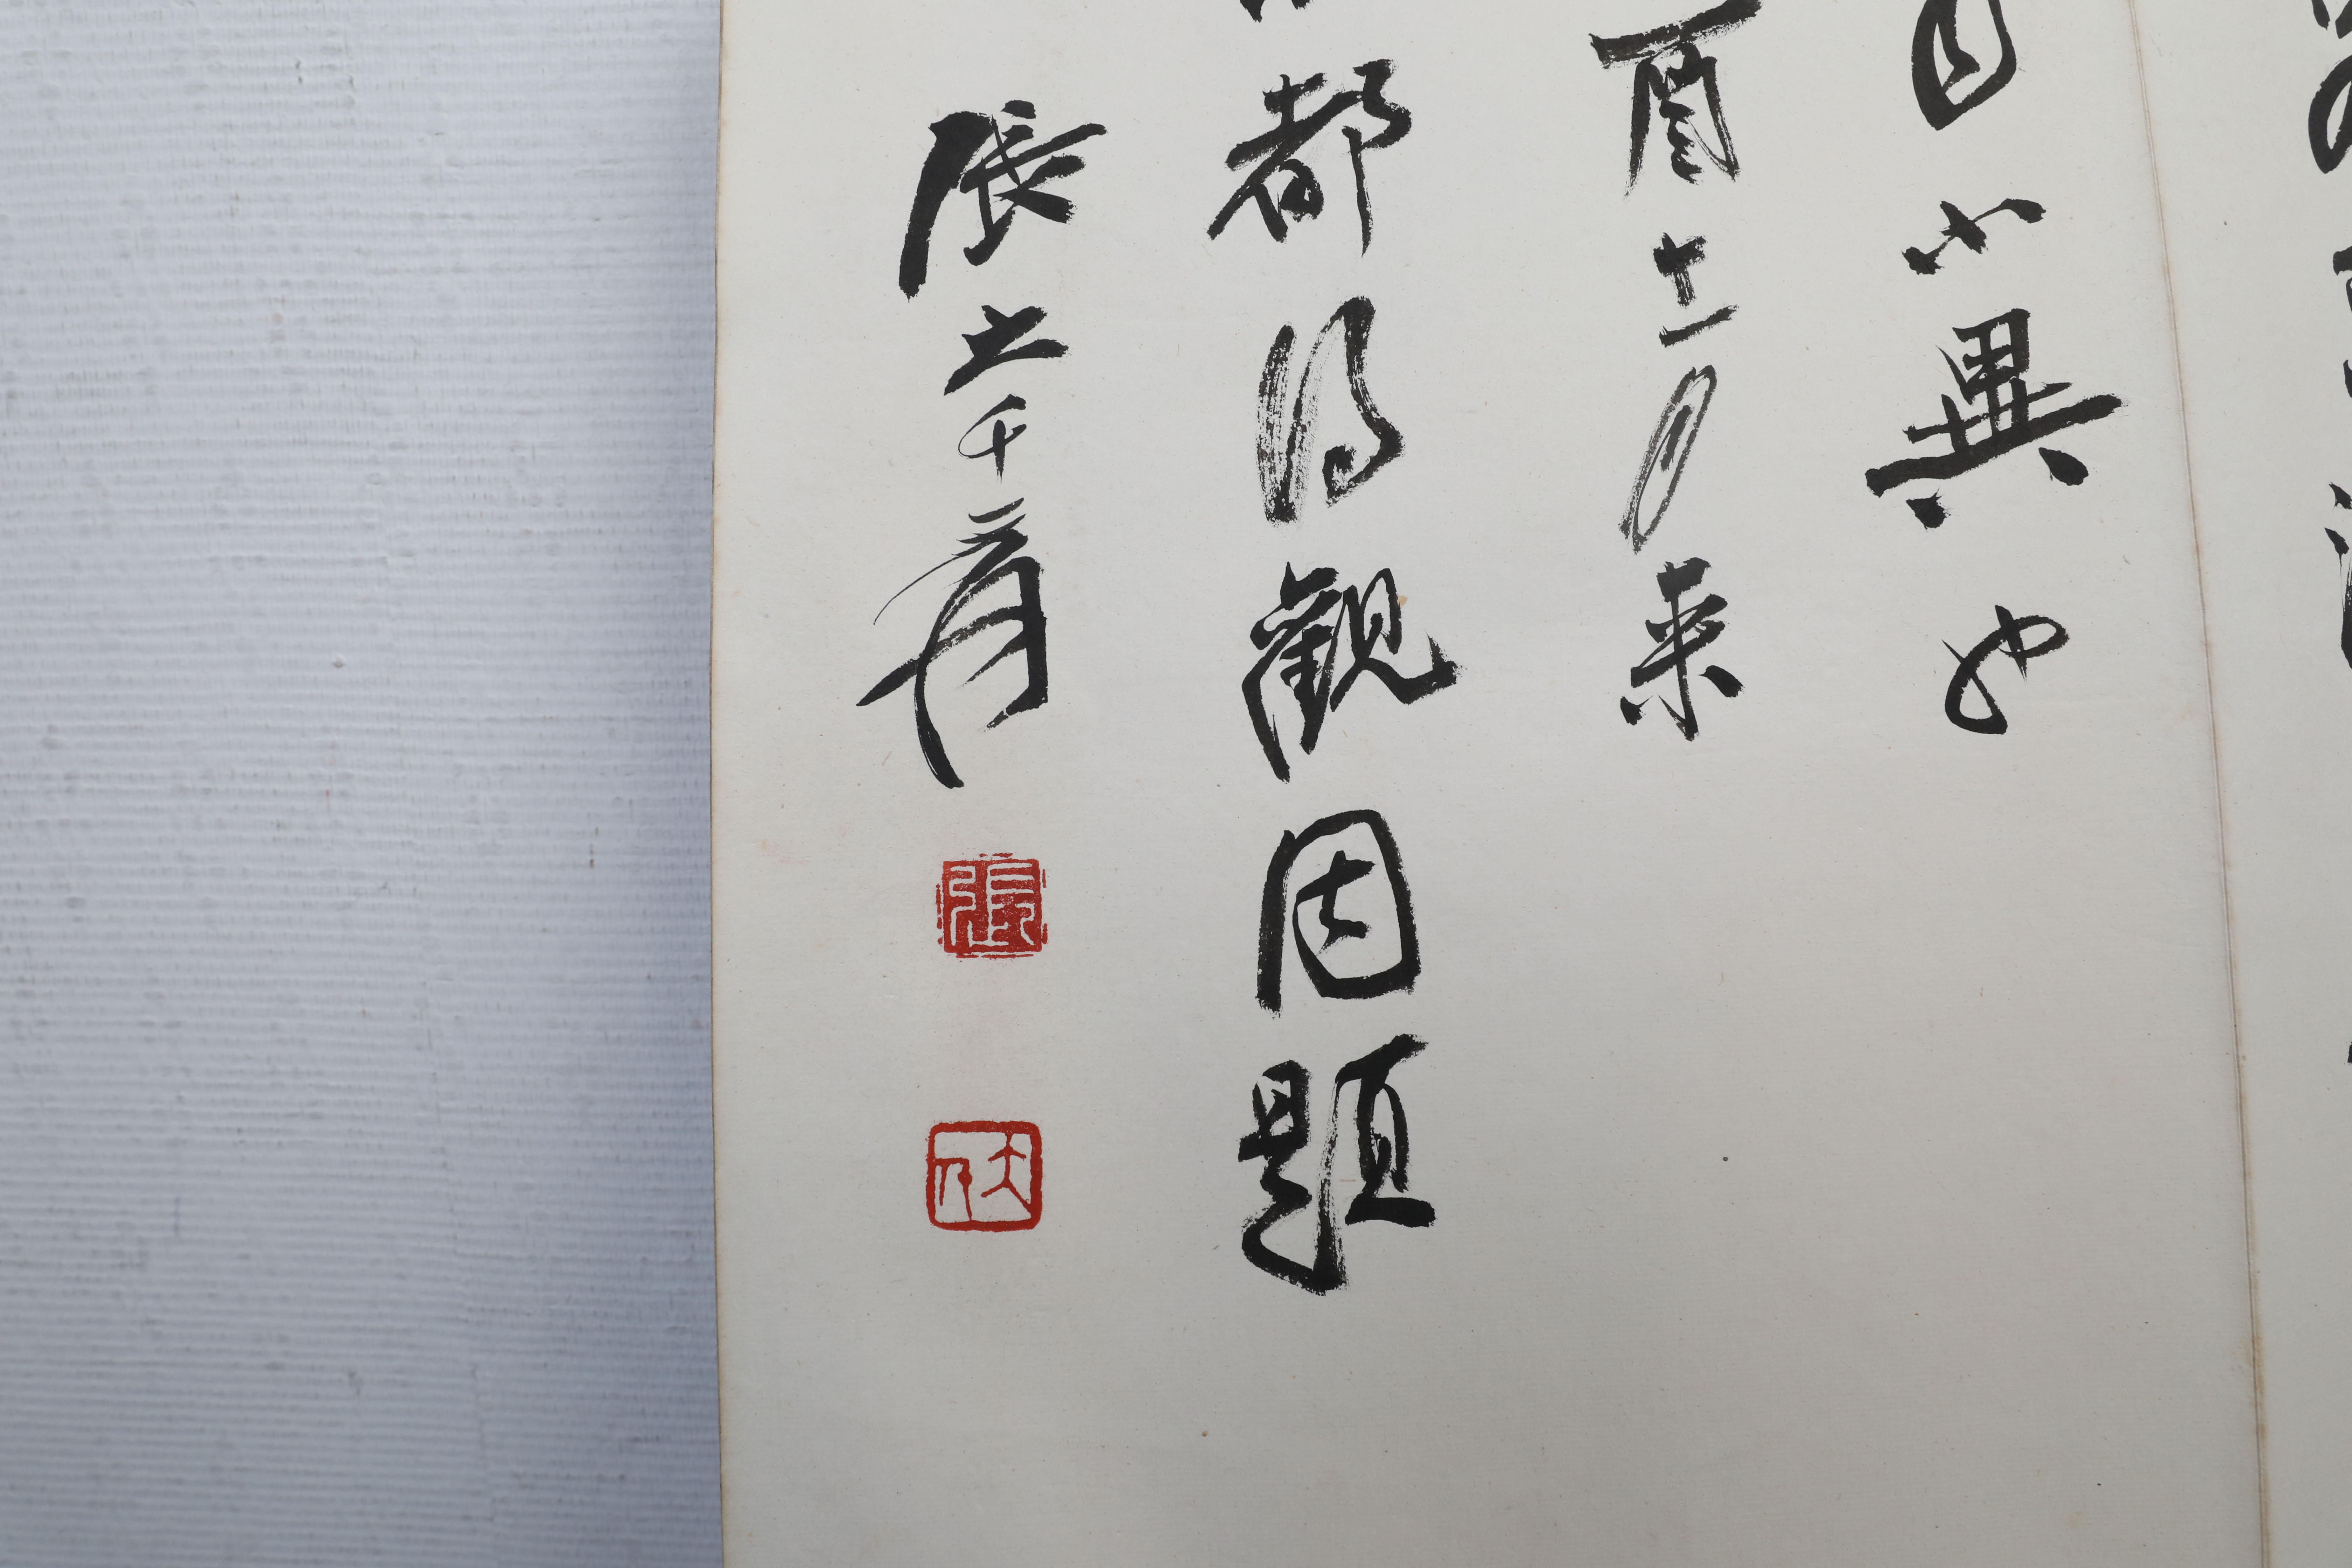 小異也
酉十一月来
都得觀因題
張大千爰
張爰
大千